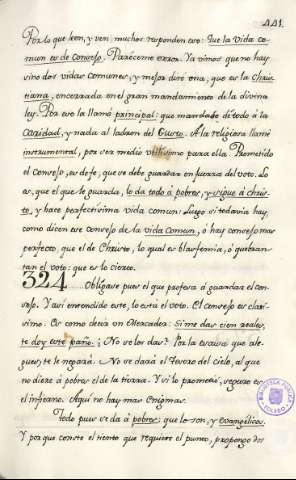 441.
Por lo que leen, y ven, muchos responden eso: Que la Vida co-
mun es de Consejo. Paréceme error. Ya vimos que no hay
sino dos vidas comunes, y mejor diré una, que es la Chris-
tiana, encerrada en el gran mandamiento de la divina
ley. Por eso la llamó principal: que manda se dé todo á la
Caridad, y nada al ladron del Gusto. A la religiosa llamé
instrumental, por ser medio utilissimo para ella. Prometido
el Consejo, es de fe, que se debe guardar en fuerza del voto. Lo
es, que el que le guarda, lo da todo á pobres, y sigue á Chris-
to, y hace perfectissima vida comun: Luego si todavia hay,
como dicen ese Consejo de la vida Comun, ó hay consejo mas
perfecto, que el de Christo, lo qual es blasfemia, ó quebran-
tan el voto: que es lo cierto.
324 Obligase pues el que profesa á guardar el con-
sejo. Y asi entendido este, lo está el voto. El consejo es clari-
simo. Es como decir un Mercader: Si me das cien reales,
te doy este paño. ¿No se los das? Por la escusa que ale-
gues, te le negará. No se dará el Tesoro del cielo, al que
no diere á pobres el de la tierra. Y si lo prometió, seguro es
el infierno. Aquí no hay mas Enigmas.
Todo pues se da á pobres: que lo son, y evangélicos.
Y por que conste el tiento que requiere el punto, propongo dos
BIBLIOTECA PUBLICA
TOLEDO